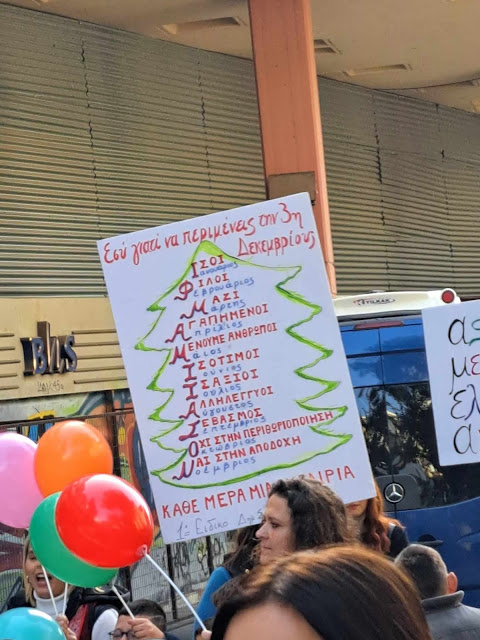 Εσύ γιατί να περιμένεις την 3η
Δεκεμβρίου;
ΙΣΟΙ
Ιανουάριος
ΦΙΛΟΙ
Φεβρουάριος
ΜΑΖΙ
Μάρτης
ΑΓΑΠΗΜΕΝΟΙ
Απρίλιος
ΜΕΝΟΥΜΕ ΑΝΘΡΩΠΟΙ
Μάιος
ΙΣΟΤΙΜΟΙ
Ιούνιος
ΙΣΑΞΙΟΙ
Ιούλιος
ΑΛΛΗΛΕΓΓΥΟΙ
Αύγουστος
ΣΕΒΑΣΜΟΣ
Σεπτέμβριος
ΟΧΙ ΣΤΗΝ ΠΕΡΙΘΩΡΙΟΠΟΙΗΣΗ
Οκτώβριος
ΝΑΙ ΣΤΗΝ ΑΠΟΔΟΧΗ
Νοέμβριος
ΚΑΘΕ ΜΕΡΑ ΜΙΑ
1ο Ειδικό